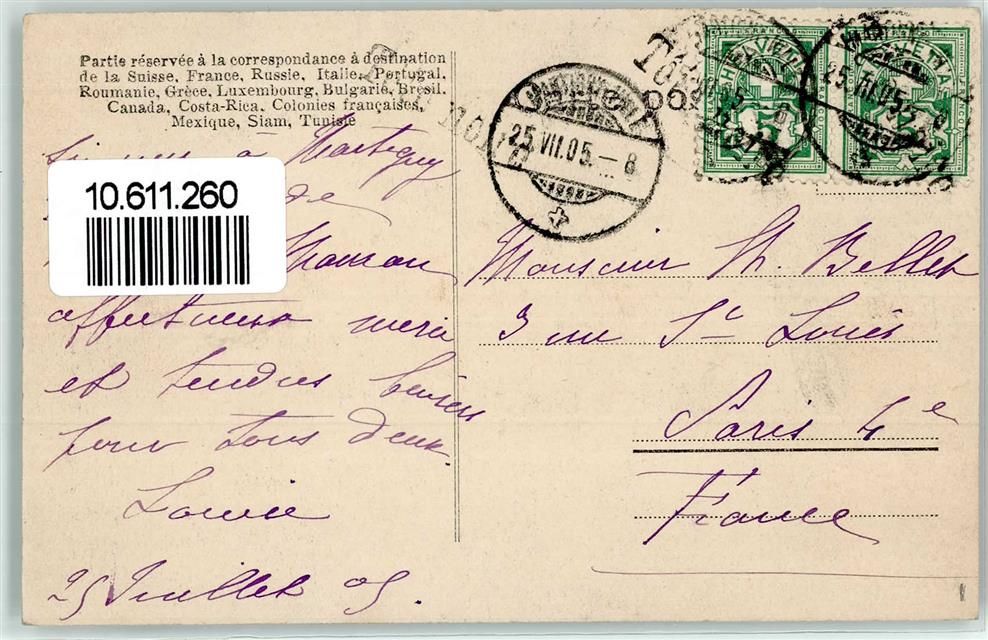 Partie réservée à la correspondance à destination
de la Suisse, France, Russie, Italie, Portugal,
Roumanie, Grèce, Luxembourg, Bulgarie, Brésil,
Canada, Costa-Rica, Colonies françaises,
Mexique, Siam, Tunisie
à Martigny
de
10.611.260
Maman
affectueux merci
et tendres baisers
pour tous deux.
Louise
25 Juillet 05
25.VII.05.-8
HELVETIA
25.VII.05.-8
FRANCO
HELVETIA
FRANCO
Monsieur Th. Bellet
3 rue St Louis
Paris 4e
France